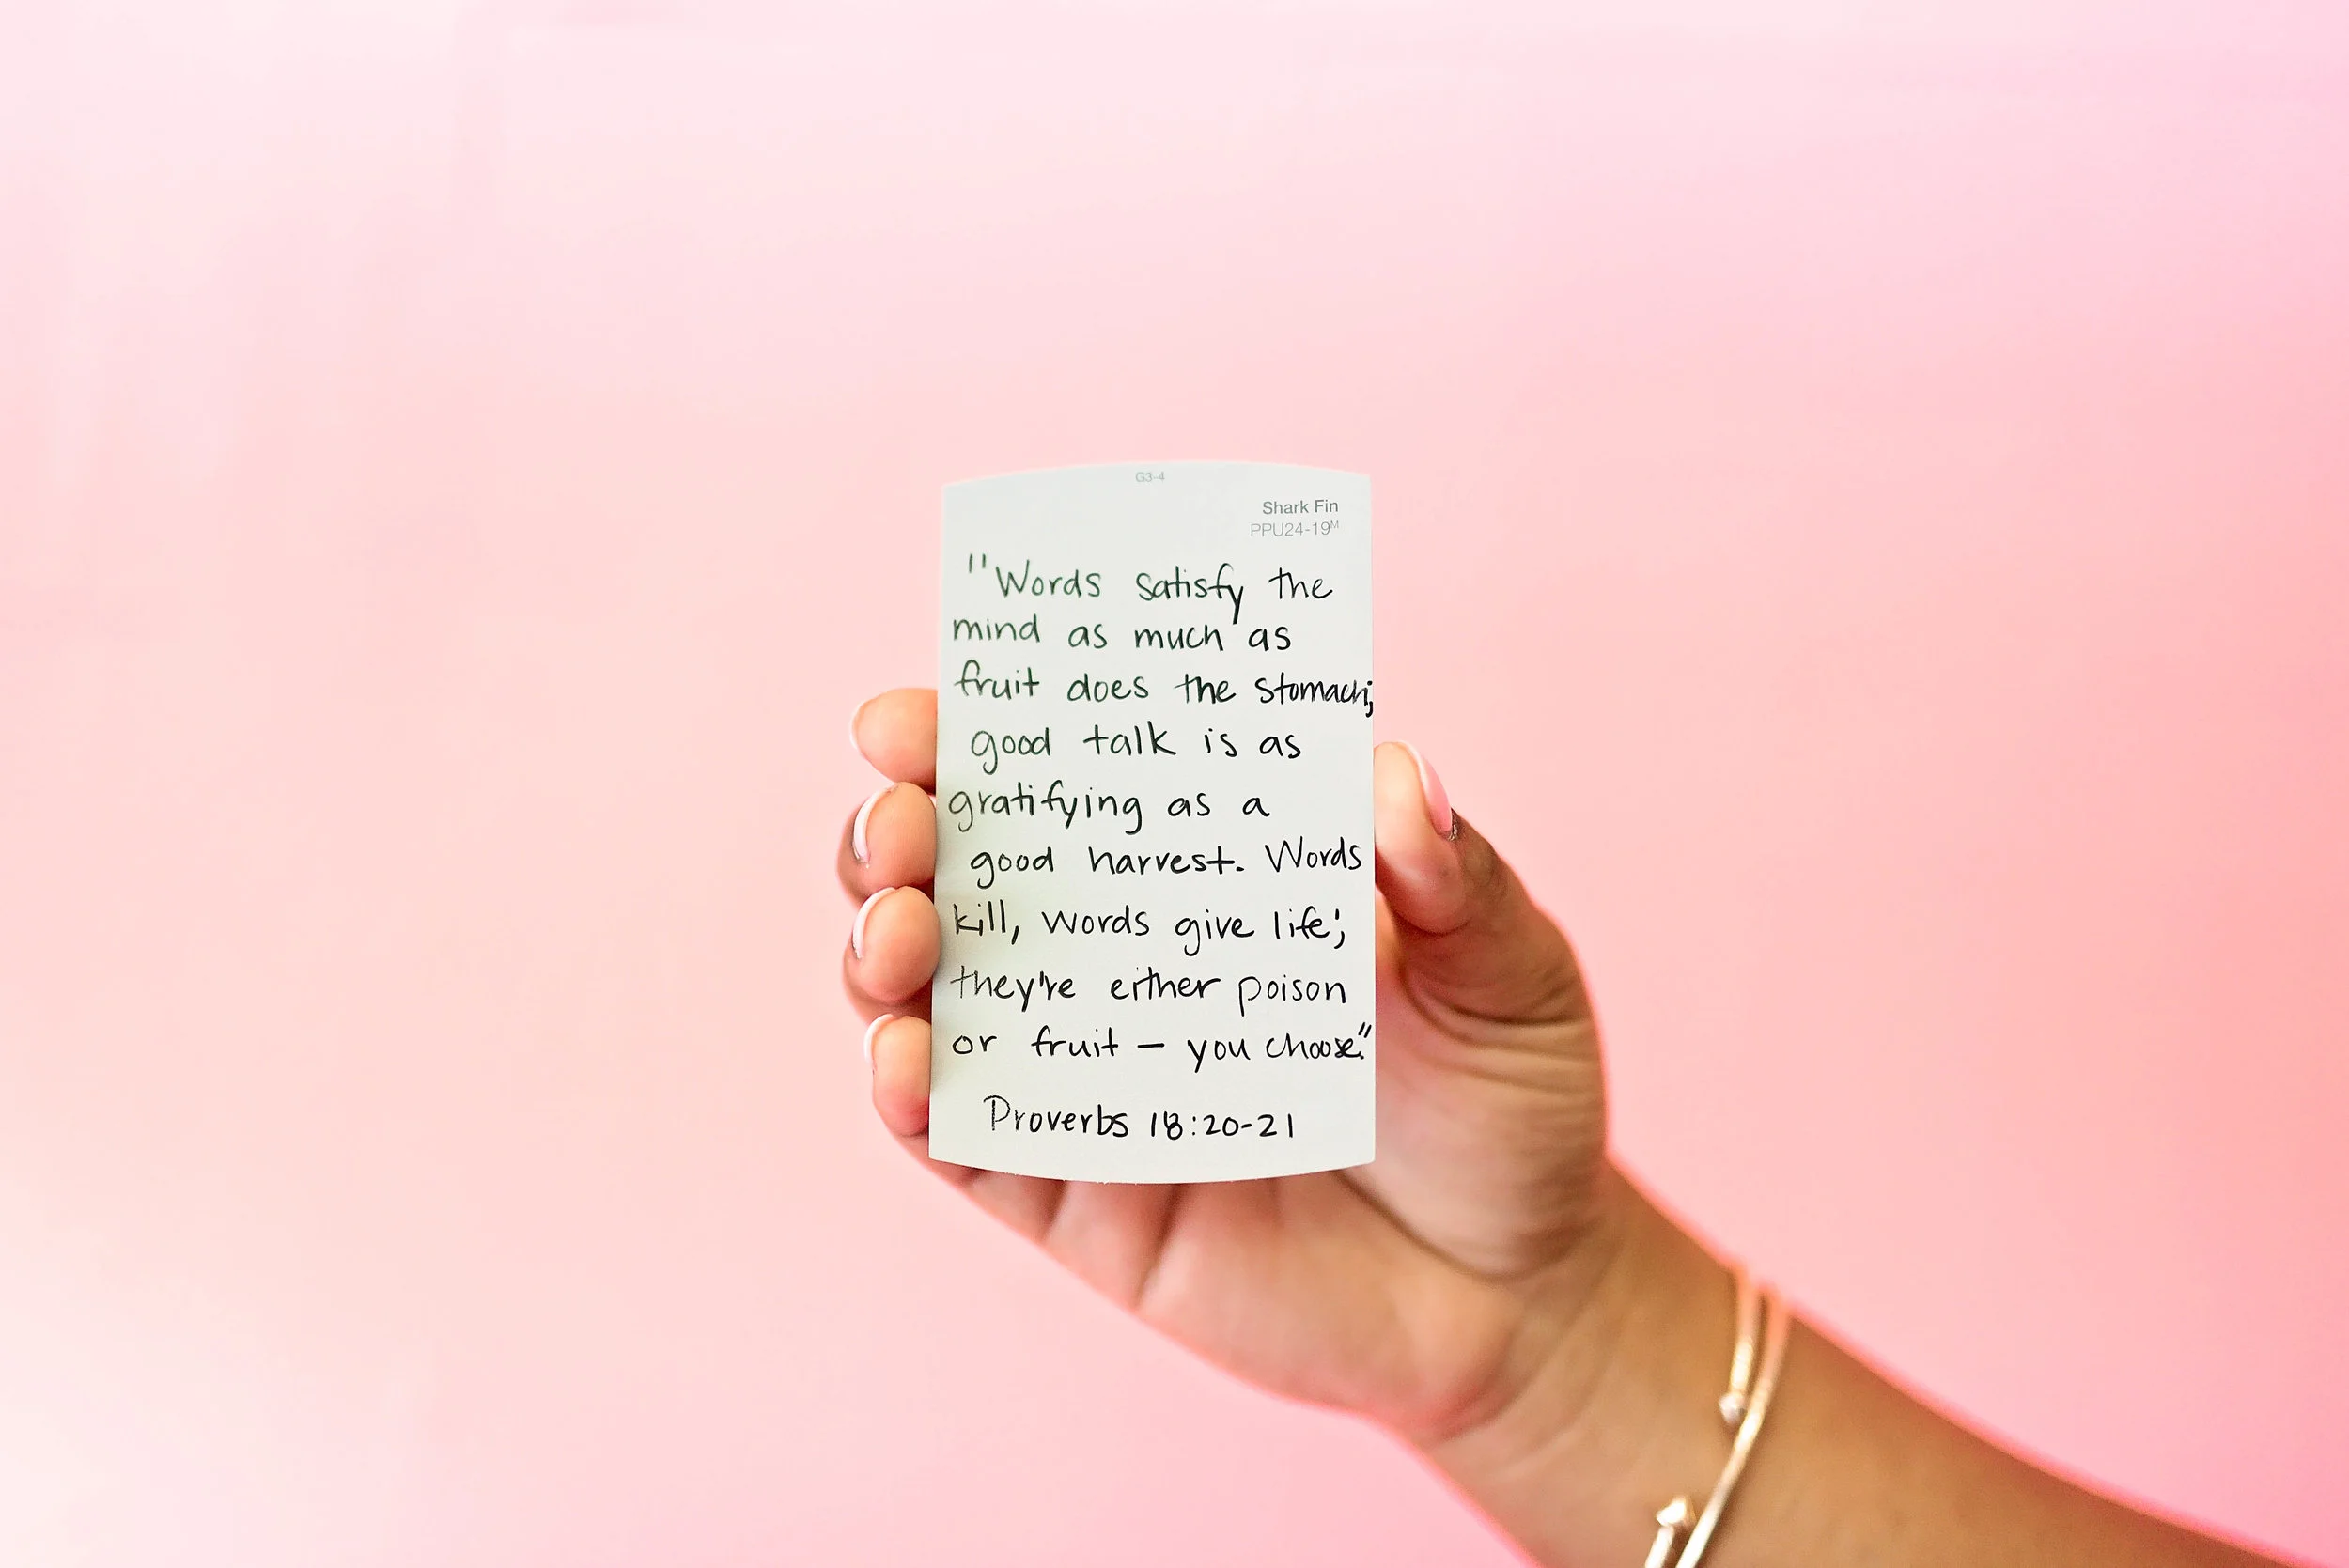 G3-4
Shark Fin
PPU24-19ᴹ
"Words satisfy the
mind as much as
fruit does the stomach;
good talk is as
gratifying as a
good harvest. Words
kill, words give life;
they're either poison
or fruit — you choose."
Proverbs 18:20-21